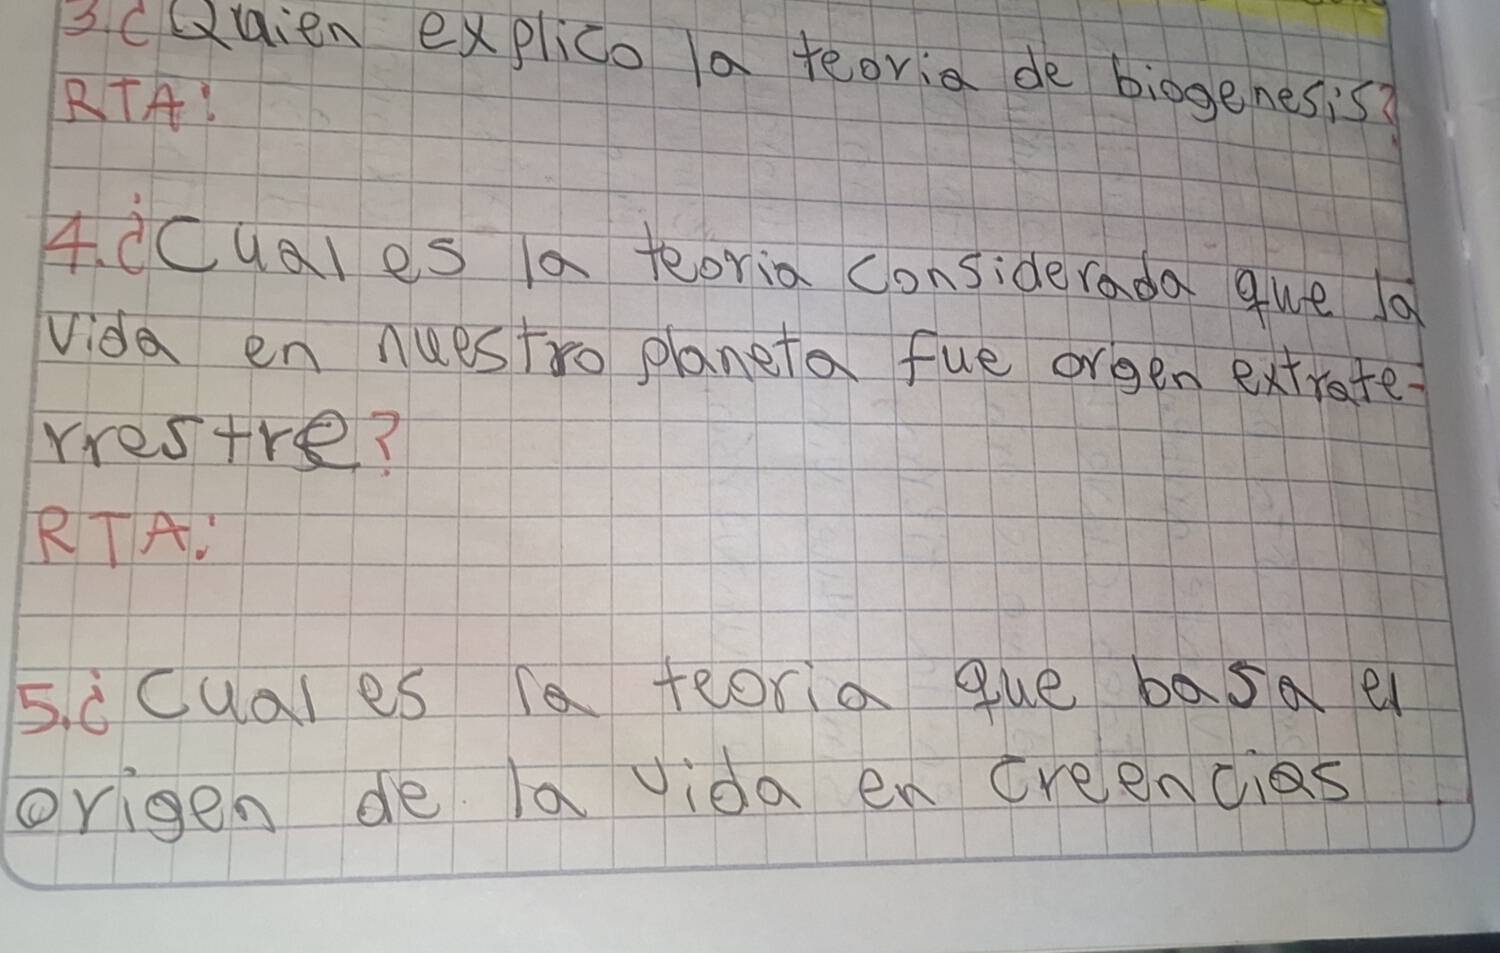 3.¿Quien explico la teoria de biogenesis?
RTA:
4.¿Cual es la teoria considerada que la
vida en nuestro planeta fue orgen extrate-
rrestre?
RTA:
5.¿Cual es la teoria que basa el
origen de la vida en creencias